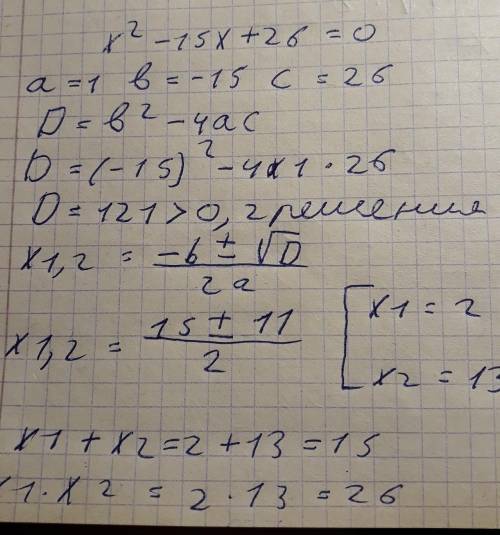 x² - 15x + 26 = 0
a = 1 в = -15 c = 26
D = в² - 4ac
D = (-15)² - 4·1·26
D = 121 > 0, 2 решения
x1,2 = (-b ± √D) / 2a
x1,2 = (15 ± 11) / 2 [ x1 = 2
x2 = 13
x1 + x2 = 2 + 13 = 15
x1 · x2 = 2 · 13 = 26